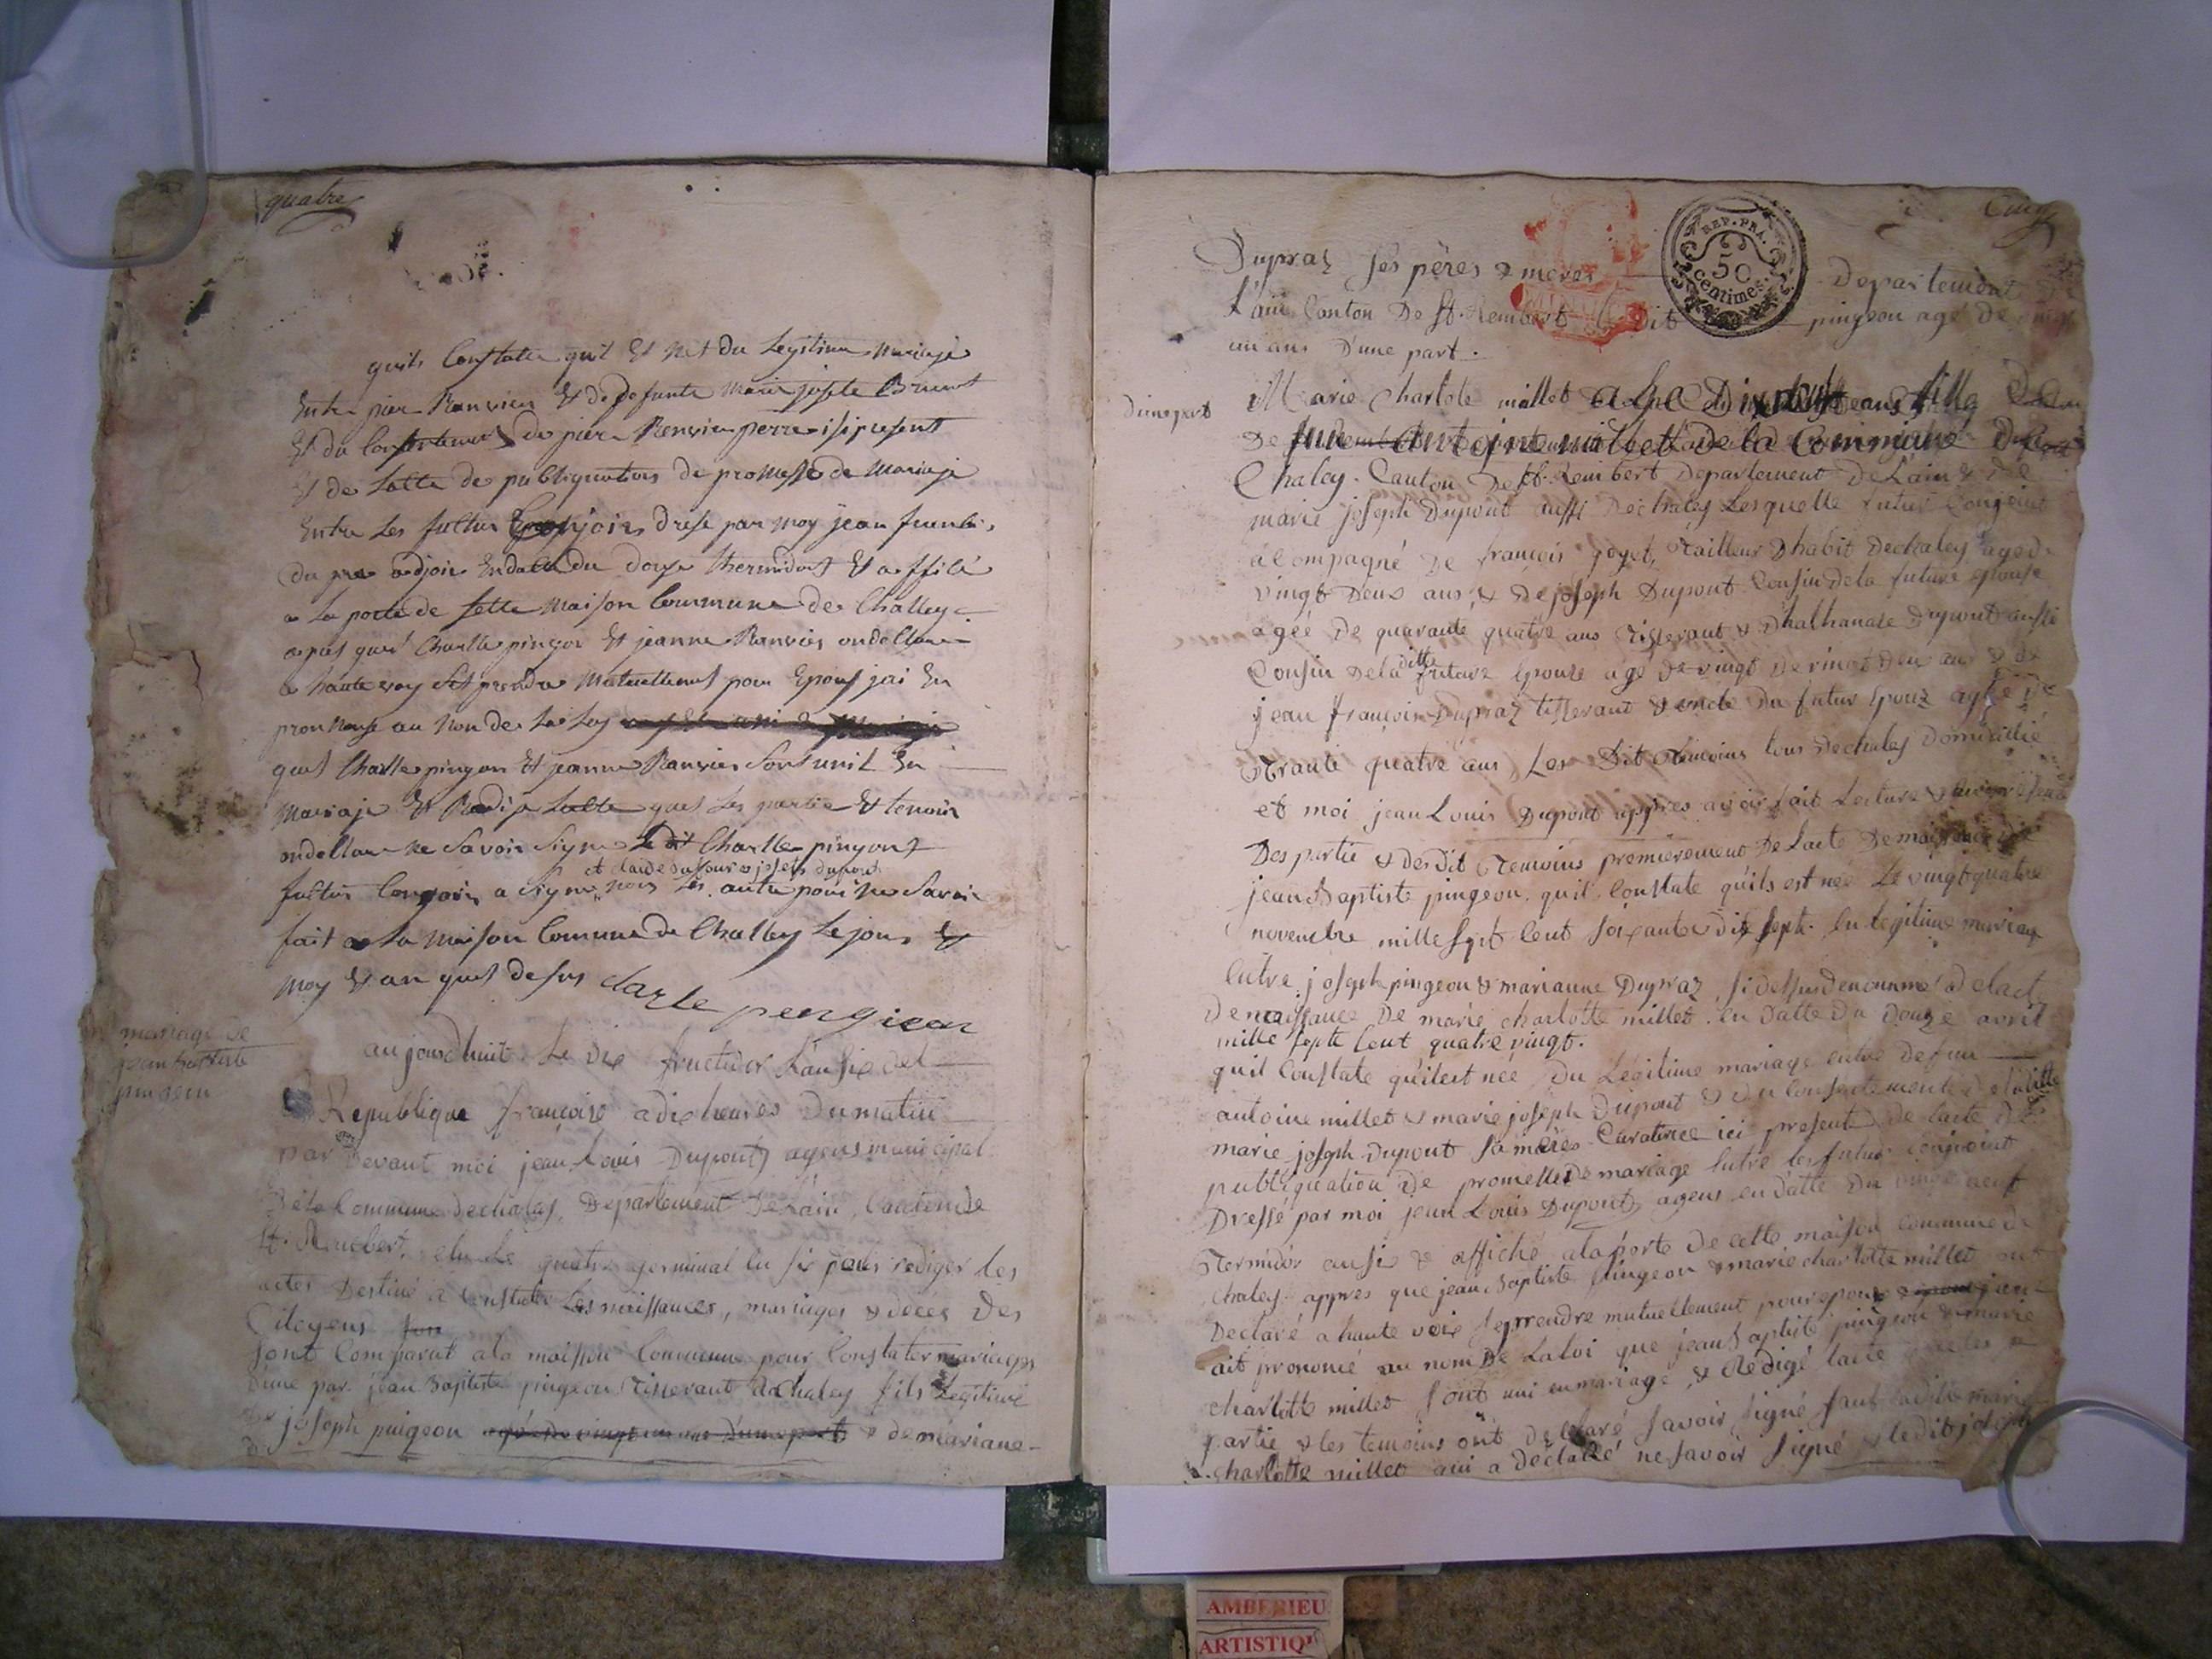 quatre
quils Constate quil Et Net du Legitime Mariaje
Entre pier Ranvier Et de defunte Marie josete Brunet
Et du Consentement de pierre Renvier perre isi present
Et de Latte de publiquations de promesse de Mariaje
Entre Les futtur Conjoin drese par moy jean
du pra adjoin Endatte du douze thermidort Et affilé
a La porte de sette Maison Commune de Challey
apres que Charlle pinjon Et jeanne Ranvier ondellare
a haute voy Set prendre Mutuellement pour Epous jai En
prononse au Non de La Loy
quel Charlle pinjon Et jeanne Ranvier Sont unit En
Mariaje Et Redije Latte quel Les partie Et temoin
ondellare ne Savoir Signe Ledit Charlle pinjont
et claide dufour josets dupont
futtur Conjoin a Signe nous Les autre pour ne Savoir
fait a La Maison Comune de Challey Le jour Et
moy Et an quel desus
Carle pengieon
mariage de
jean Baptiste
pingeon
aujourdhuit Le dix fructidor L'an six del
Republique françoise adix heures Dumatin
par Devant moi jean Louis Dupont agens municipal
Dela Commune dechaley, Departement De Lain, Canton de
St. Rembert, elu Le quatre germinal en six pour rediger les
actes Destiné a Constater Les naissances, mariages & deces Des
Citoyens
Sont Comparut ala maison Commune pour Constater mariages
Dune par jean Baptiste pingeon Tisserant dechaley fils Legitime
De joseph pingeon agé de vingt un ans Dune part & de mariane
Cinq
REP. FRA.
50
centimes
Dupraz ses pères & meres Departement De
L'ain Canton De St. Rembert Le dit pingeon agé de vingt
un ans D'une part.
Dune part
Marie Charlote millet fille
De Antoine millet de la Commune De
Chaley Canton De St. Rembert Departement De Lain & De
marie joseph Dupont aussi Dechaley Lesquelle futur Conjoint
acompagné De francois goyet, Tailleur D habit Dechaley aged
vingt Deux ans, & De joseph Dupont Cousin dela future epouse
agée De quarante quatre ans Tisserant & Dhathanase Dupont aussi
Cousin Dela ditte future Epouze agé de vingt De vingt Deux ans & De
jean francois Dupraz tisserant & oncle Du futur Epouz agée De
Trante quatre ans Les Dit Temoins tous Dechaley Domicillié
et moi jean Louis Dupont appres avoir fait Lecture
Des partie & desdit Temoins premierement De Lacte De naissance de
jean Baptiste pingeon. quil Constate quils est née Le vingt quatre
novembre mille sept Cent Soixante Dix sept. En legitime mariage
Entre joseph pingeon & marianne Dupraz, si dessus denommé Delacte
De naissance De marie charlotte millet. En Datte Du Douze avril
mille septe Cent quatre vingt.
quil Constate quilest née Du Légitime mariage entre defun
antoine millet & marie joseph Dupont & du Consentement de ladite
marie joseph Dupont Sa mères Curatrice ici present, de lacte De
publiquation De promesse De mariage Entre les futur conjoint
Dressé par moi jean Louis Dupont agens en Datte Du vingt neuf
Termidor an six & affiché ala porte De cette maison commune de
Chaley. appres que jean Baptiste Pingeon & marie charlotte millet ont
Declaré a haute voix se prendre mutuellement pour epouz jan
ait prononcé au nom De La Loi que jean Baptiste pingeon & marie
charlotte millet Sont uni en mariage, & Redigé lacte
partie & les temoins ont declaré Savoir Signé sauf ladite marie
charlotte millet qui a déclaré ne Savoir Signé & ledit joseph
AMBERIEU
ARTISTIQU